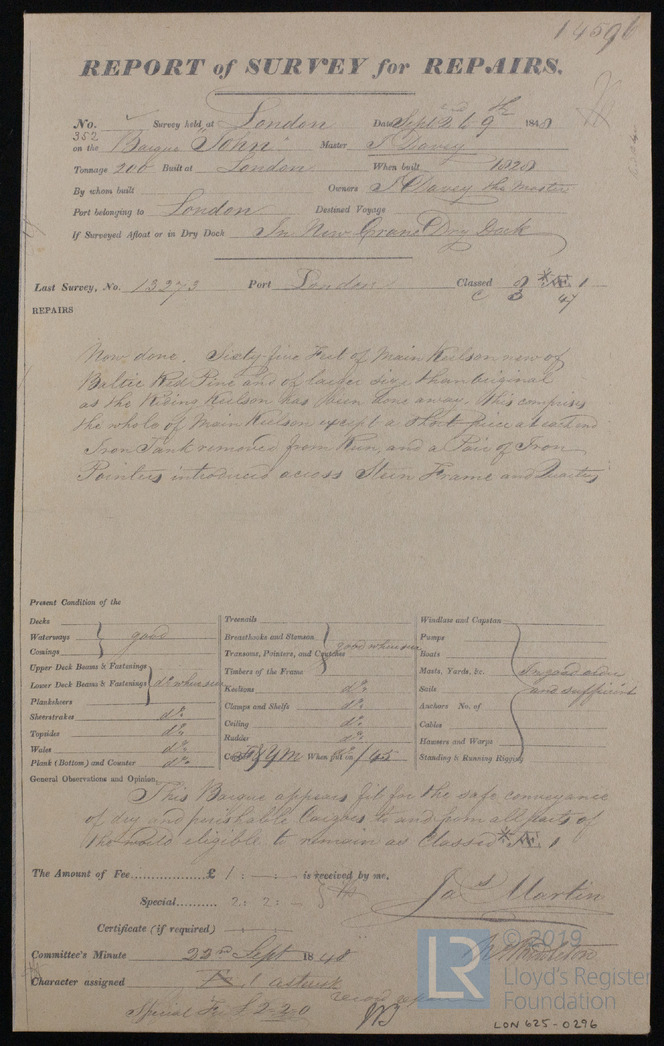 14596
REPORT of SURVEY for REPAIRS.
No. 352 Survey held at London Date Sept 2d 6 9th 1848
on the Barque "John" Master J Davey
Tonnage 200 Built at London When built 1828
By whom built Owners J Davey the Master
Port belonging to London Destined Voyage
If Surveyed Afloat or in Dry Dock In New Crane Dry Dock
Last Survey, No. 13273 Port London Classed 1
47
REPAIRS
Now done. Sixty five Feet of Main Keelson new of
Baltic Red Pine and of larger size than original
as the Rising Keelson has been done away. This comprises
the whole of Main Keelson except a short piece at each end
Iron Tank removed from Run, and a Pair of Iron
Pointers introduced across Stern Frame and Quarters
Present Condition of the
Decks
Waterways good
Comings
Upper Deck Beams & Fastenings
Lower Deck Beams & Fastenings do when seen
Planksheers
Sheerstrakes do
Topsides do
Wales do
Plank (Bottom) and Counter do
Treenails
Breasthooks and Stemson good when seen
Transoms, Pointers, and Crutches
Timbers of the Frame
Keelsons do
Clamps and Shelfs do
Ceiling do
Rudder do
When put on /45
Windlass and Capstan
Pumps
Boats
Masts, Yards, &c. In good order
Sails and sufficient
Anchors No. of
Cables
Hawsers and Warps
Standing & Running Rigging
General Observations and Opinion,
This Barque appears fit for the safe conveyance
of dry and perishable Cargoes to and from all parts of
the world eligible to remain as Classed 1
The Amount of Fee £ 1 : - : - is received by me,
Special 2 : 2 : -
Jas Martin
Certificate (if required)
Committee's Minute 22nd Sept 1848
Character assigned 1 asterisk
Special Fee £ 2-2-0
LR © 2019
Lloyd's Register
Foundation
LON 625-0296